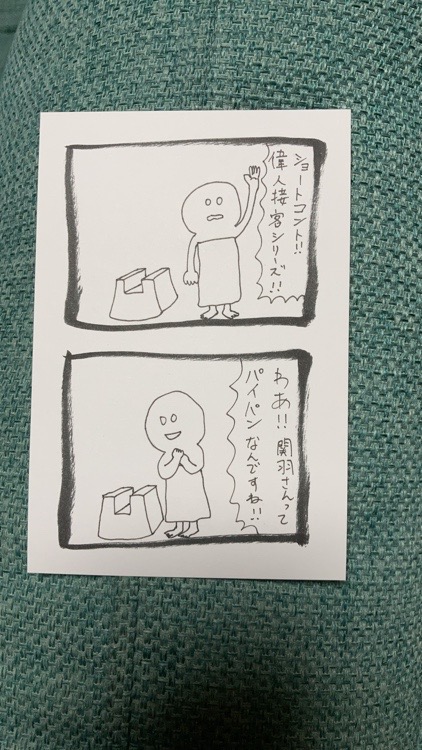 ショートコント!!
偉人接客シリーズ!!
わあ!! 関羽さんって
パイパンなんですね!!